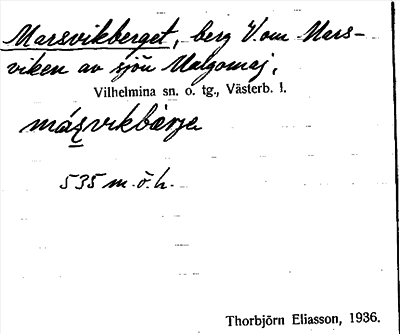 Marsvikberget, berg V. om Mars-
viken av sjön Malgomaj,
Vilhelmina sn. o. tg., Västerb. l.
máʂvikbærje
535 m.ö.h.
Thorbjörn Eliasson, 1936.